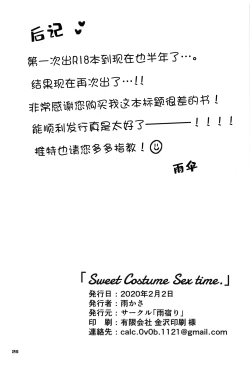 后记
第一次出R18本到现在也半年了…。
结果现在再次出了…!!
非常感谢您购买我这本标题很差的书!
能顺利发行真是太好了————!!!!
推特也请您多多指教!
雨伞
「Sweet Costume Sex time.」
発行日:2020年2月2日
発行者:雨かさ
発行元:サークル「雨宿り」
印 刷:有限会社 金沢印刷 様
連絡先:calc.0v0b.1121@gmail.com